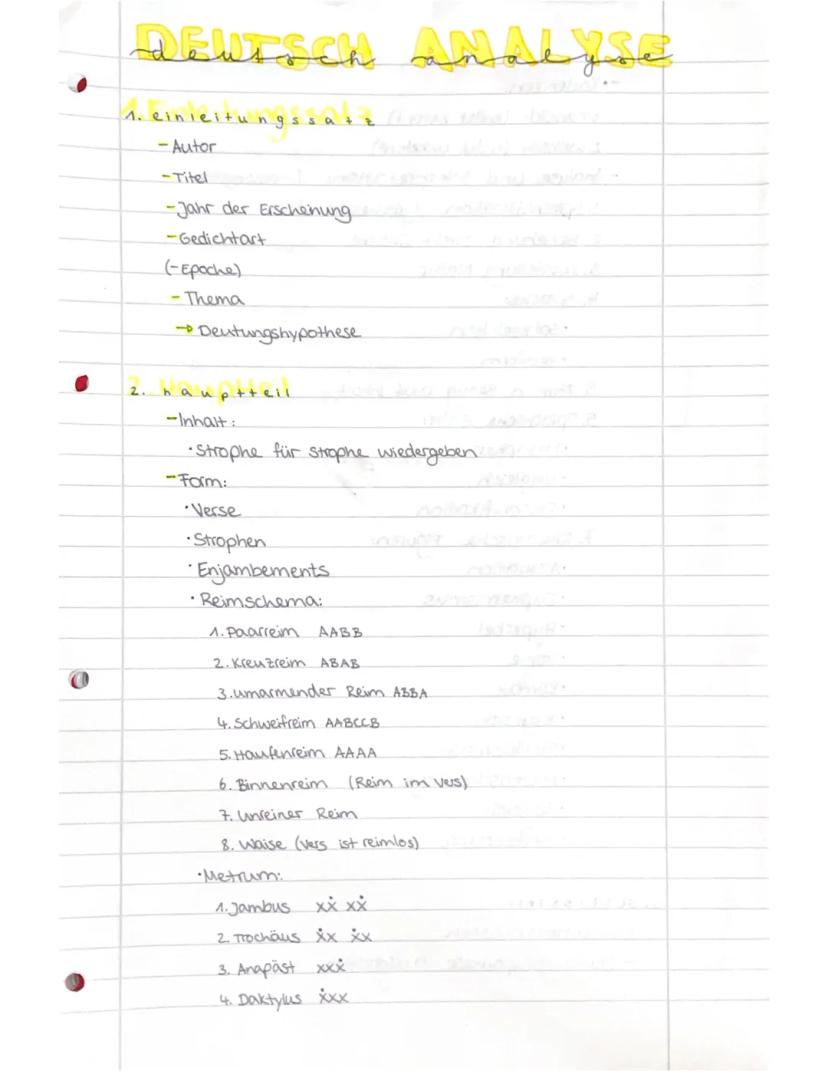 DEUTSCH ANALYSE
deutsch analyse
1. einleitungssatz
- Autor
- Titel
- Jahr der Erscheinung
- Gedichtart
(- Epoche)
- Thema
→ Deutungshypothese
2. hauptteil
- Inhalt:
· Strophe für Strophe wiedergeben
- Form:
· Verse
· Strophen
· Enjambements
· Reimschema:
1. Paarreim AABB
2. Kreuzreim ABAB
3. umarmender Reim ABBA
4. Schweifreim AABCCB
5. Haufenreim AAAA
6. Binnenreim (Reim im Vers)
7. Unreiner Reim
8. Waise (Vers ist reimlos)
· Metrum:
1. Jambus xẋ xẋ
2. Trochäus ẋx ẋx
3. Anapäst xxẋ
4. Daktylus ẋxx